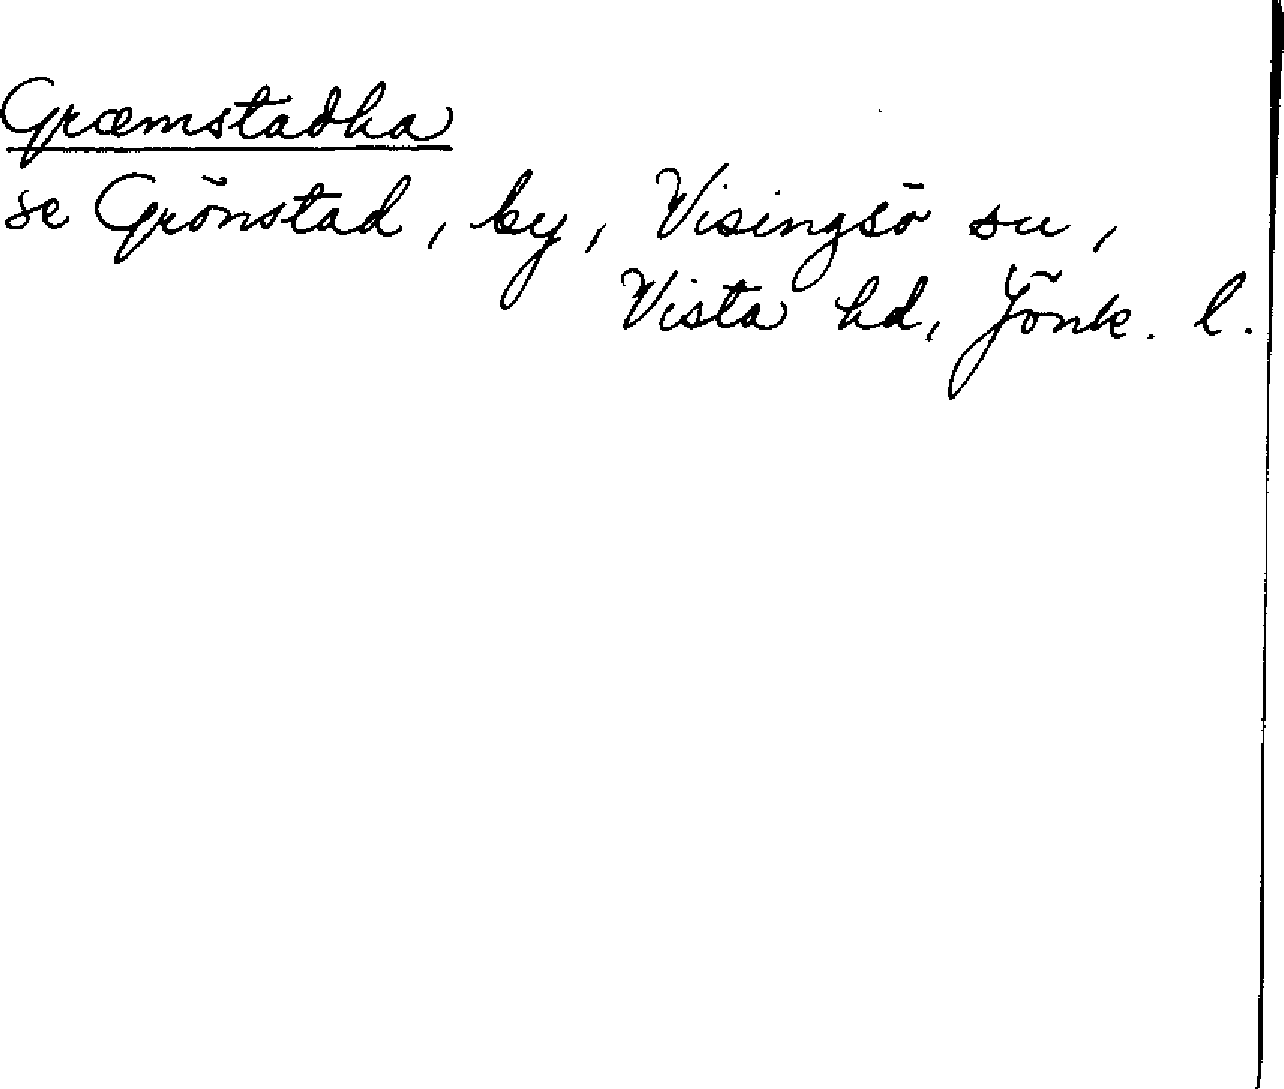 Græmstadha
se Grönstad, by, Visingsö sn,
Vista hd, Jönk. l.